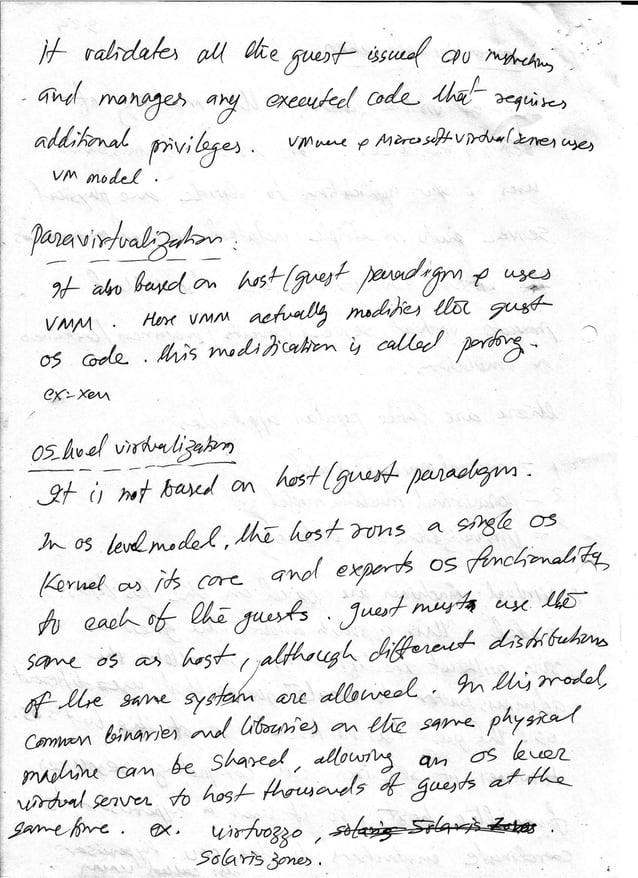 it validates all the guest issued CPU instructions
and manages any executed code that requires
additional privileges. VMware & Microsoft virtual server uses
VM model.
paravirtualization:
It also based on host/guest paradigm & uses
VMM. Here VMM actually modifies the guest
os code. this modification is called porting.
ex-xen
os level virtualization
It is not based on host/guest paradigm.
In os level model, the host runs a single os
kernel as its core and exports os functionality
to each of the guests. guest must use the
same os as host, although different distributions
of the same system are allowed. In this model,
common binaries and libraries on the same physical
machine can be shared, allowing an os level
virtual server to host thousands of guests at the
same time. ex. virtuozzo, solaris Solaris Zones.
Solaris zones.